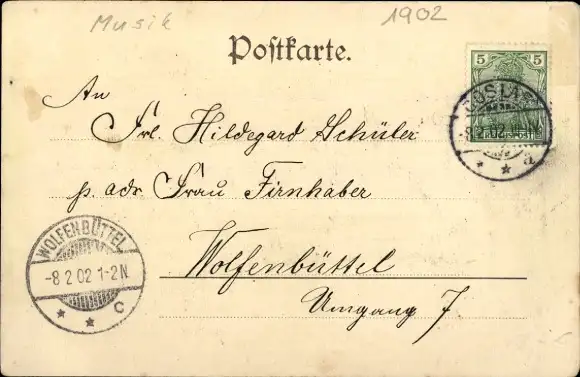 Musik
1902
Postkarte.
5 5
GOSLAR
-8 2 02
a
An
Frl. Hildegard Schüler
p. adr. Frau Firnhaber
Wolfenbüttel
Umgang 7
WOLFENBÜTTEL
-8 2 02 1-2N
* * c